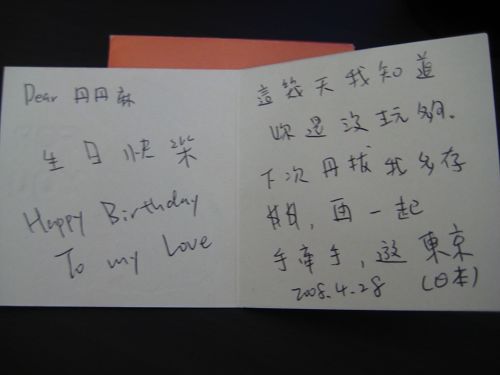 Dear 丹丹麻
生日快樂
Happy Birthday
To my Love
這幾天我知道
妳還沒玩夠.
下次丹拔我多存
錢, 再一起
手牽手, 遊東京
2008.4.28 (日本)